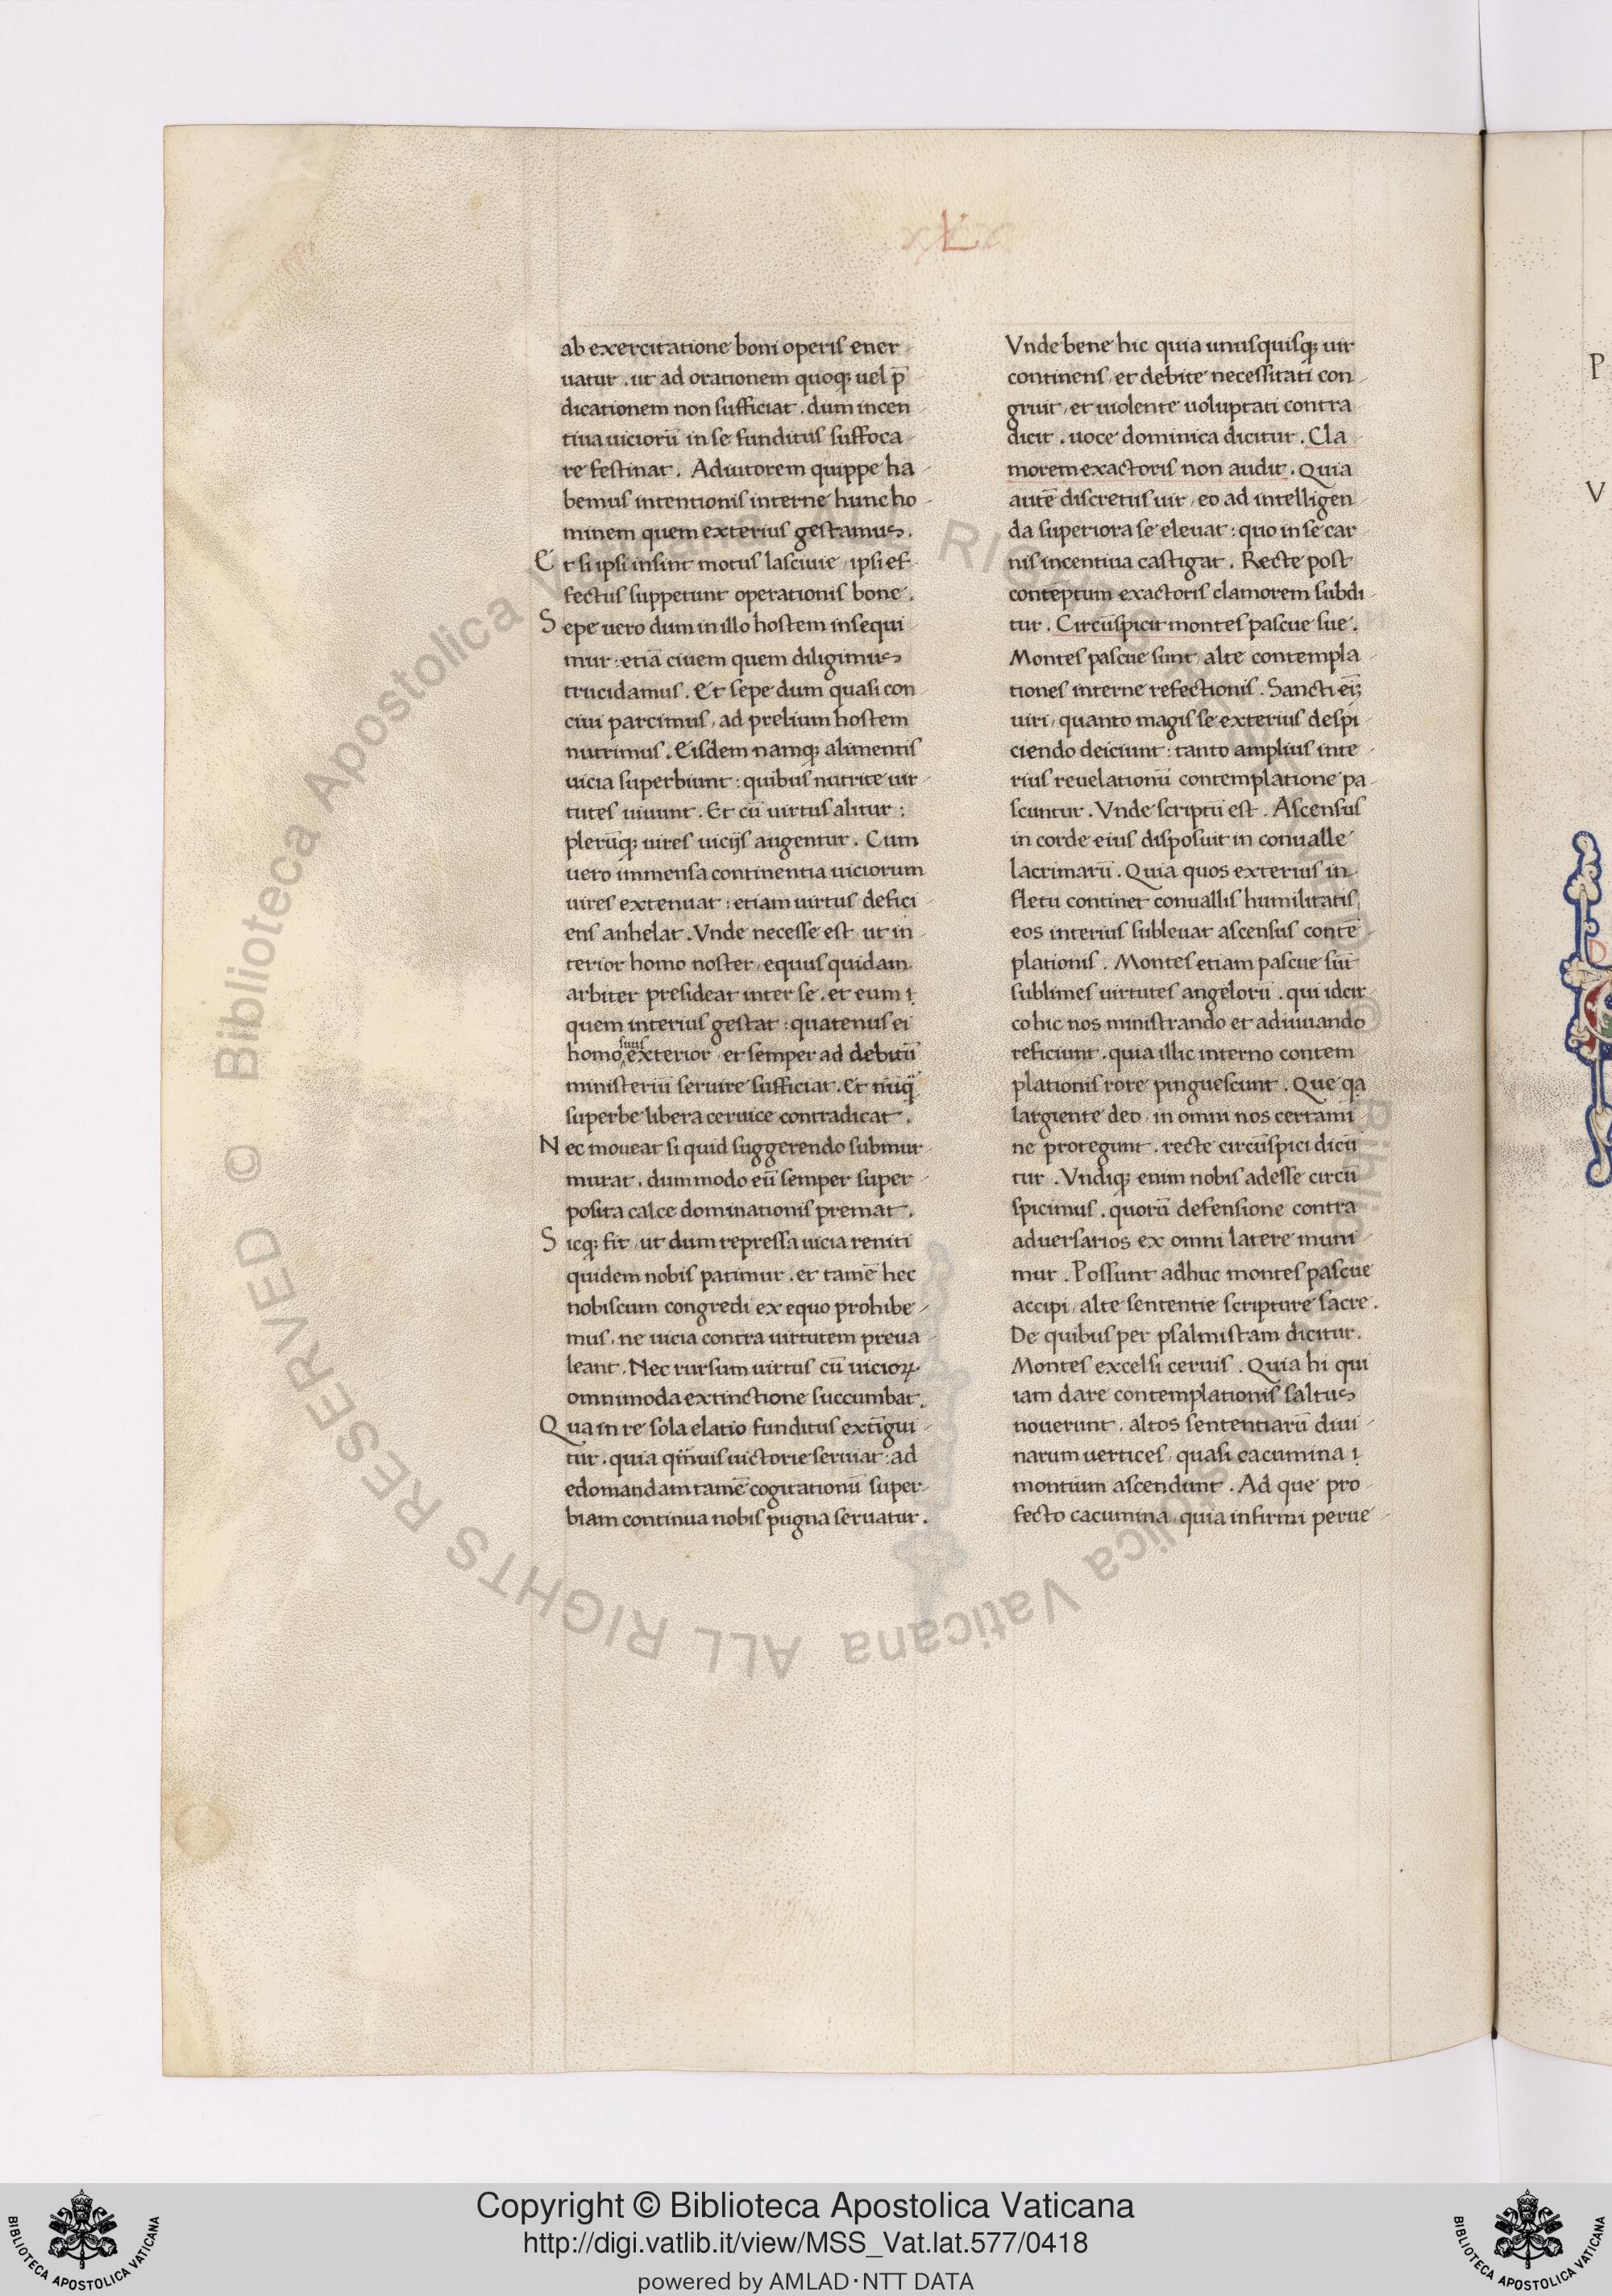 L
ab exercitatione boni operis ener
uatur . ut ad orationem quoq; uel p̄
dicationem non sufficiat . dum incen
tiua uiciorū in se funditus suffoca
re festinat . Adiutorem quippe ha
bemus intentionis interne hunc ho
minem quem exterius gestamus .
Et si ipsi insint motus lasciuie , ipsi ef
fectus suppetunt operationis bone .
Sepe uero dum in illo hostem insequi
mur : etiā ciuem quem diligimus
trucidamus . Et sepe dum quasi con
ciui parcimus , ad prelium hostem
nutrimus . Eisdem namq; alimentis
uicia superbiunt : quibus nutrite uir
tutes uiuunt . Et cū uirtus alitur :
plerūq; uires uicijs augentur . Cum
uero immensa continentia uiciorum
uires extenuat : etiam uirtus defici
ens anhelat . Vnde necesse est ut in
terior homo noster , equus quidam
arbiter presideat inter se . et eum
quem interius gestat : quatenus ei
homo suus exterior , et semper ad debitū
ministeriū seruire sufficiat . Et nūq̄
superbe libera ceruice contradicat .
Nec moueat si quid suggerendo submur
murat . dummodo eū semper super
posita calce dominationis premat .
Sicq; fit , ut dum repressa uicia reniti
quidem nobis patimur . et tamē hec
nobiscum congredi ex equo prohibe
mus , ne uicia contra uirtutem preua
leant . Nec rursum uirtus cū uicioꝝ
omnimoda extinctione succumbat .
Qua in re sola elatio funditus extīgui
tur . quia q̄muis uictorie seruiat : ad
edomandam tamē cogitationū super
biam continua nobis pugna seruatur .
Vnde bene hic quia unusquisq; uir
continens , et debite necessitati con
gruit , et uiolente uoluptati contra
dicit . uoce dominica dicitur . Cla
morem exactoris non audit . Quia
autē discretus uir , eo ad intelligen
da superiora se eleuat : quo in se car
nis incentiua castigat . Recte post
contēptum exactoris clamorem subdi
tur . Circūspicit montes pascue sue .
Montes pascue sunt , alte contempla
tiones interne refectionis . Sancti ei;
uiri , quanto magis se exterius despi
ciendo deiciunt : tanto amplius inte
rius reuelationū contemplatione pa
scuntur . Vnde scriptū est . Ascensus
in corde eius disposuit in conualle
lacrimarū . Quia quos exterius in
fletu continet conuallis humilitatis
eos interius subleuat ascensus contē
plationis . Montes etiam pascue sūt
sublimes uirtutes angelorū . qui idcir
co hic nos ministrando et adiuuando
reficiunt . quia illic interno contem
plationis rore pinguescunt . Que qa
largiente deo , in omni nos certami
ne protegunt . recte circūspici dicū
tur . Vndiq; enim nobis adesse circū
spicimus . quorū defensione contra
aduersarios ex omni latere muni
mur . Possunt adhuc montes pascue
accipi , alte sententie scripture sacre .
De quibus per psalmistam dicitur .
Montes excelsi ceruis . Quia hi qui
iam dare contemplationis saltus
nouerunt . altos sententiarū diui
narum uertices , quasi cacumina
montium ascendunt . Ad que pro
fecto cacumina , quia infirmi perue
P
V
© Biblioteca Apostolica Vaticana ALL RIGHTS RESERVED
BIBLIOTECA APOSTOLICA VATICANA
Copyright © Biblioteca Apostolica Vaticana
http://digi.vatlib.it/view/MSS_Vat.lat.577/0418
powered by AMLAD·NTT DATA
BIBLIOTECA APOSTOLICA VATICANA